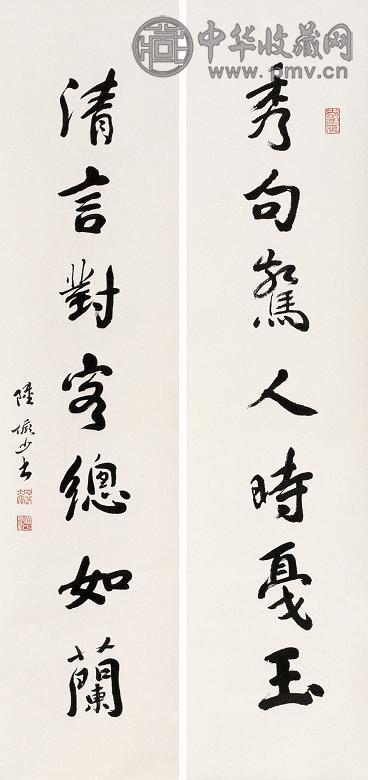 中华收藏网
www.pmv.cn
秀句驚人時戛玉
清言對客總如蘭
陸儼少書